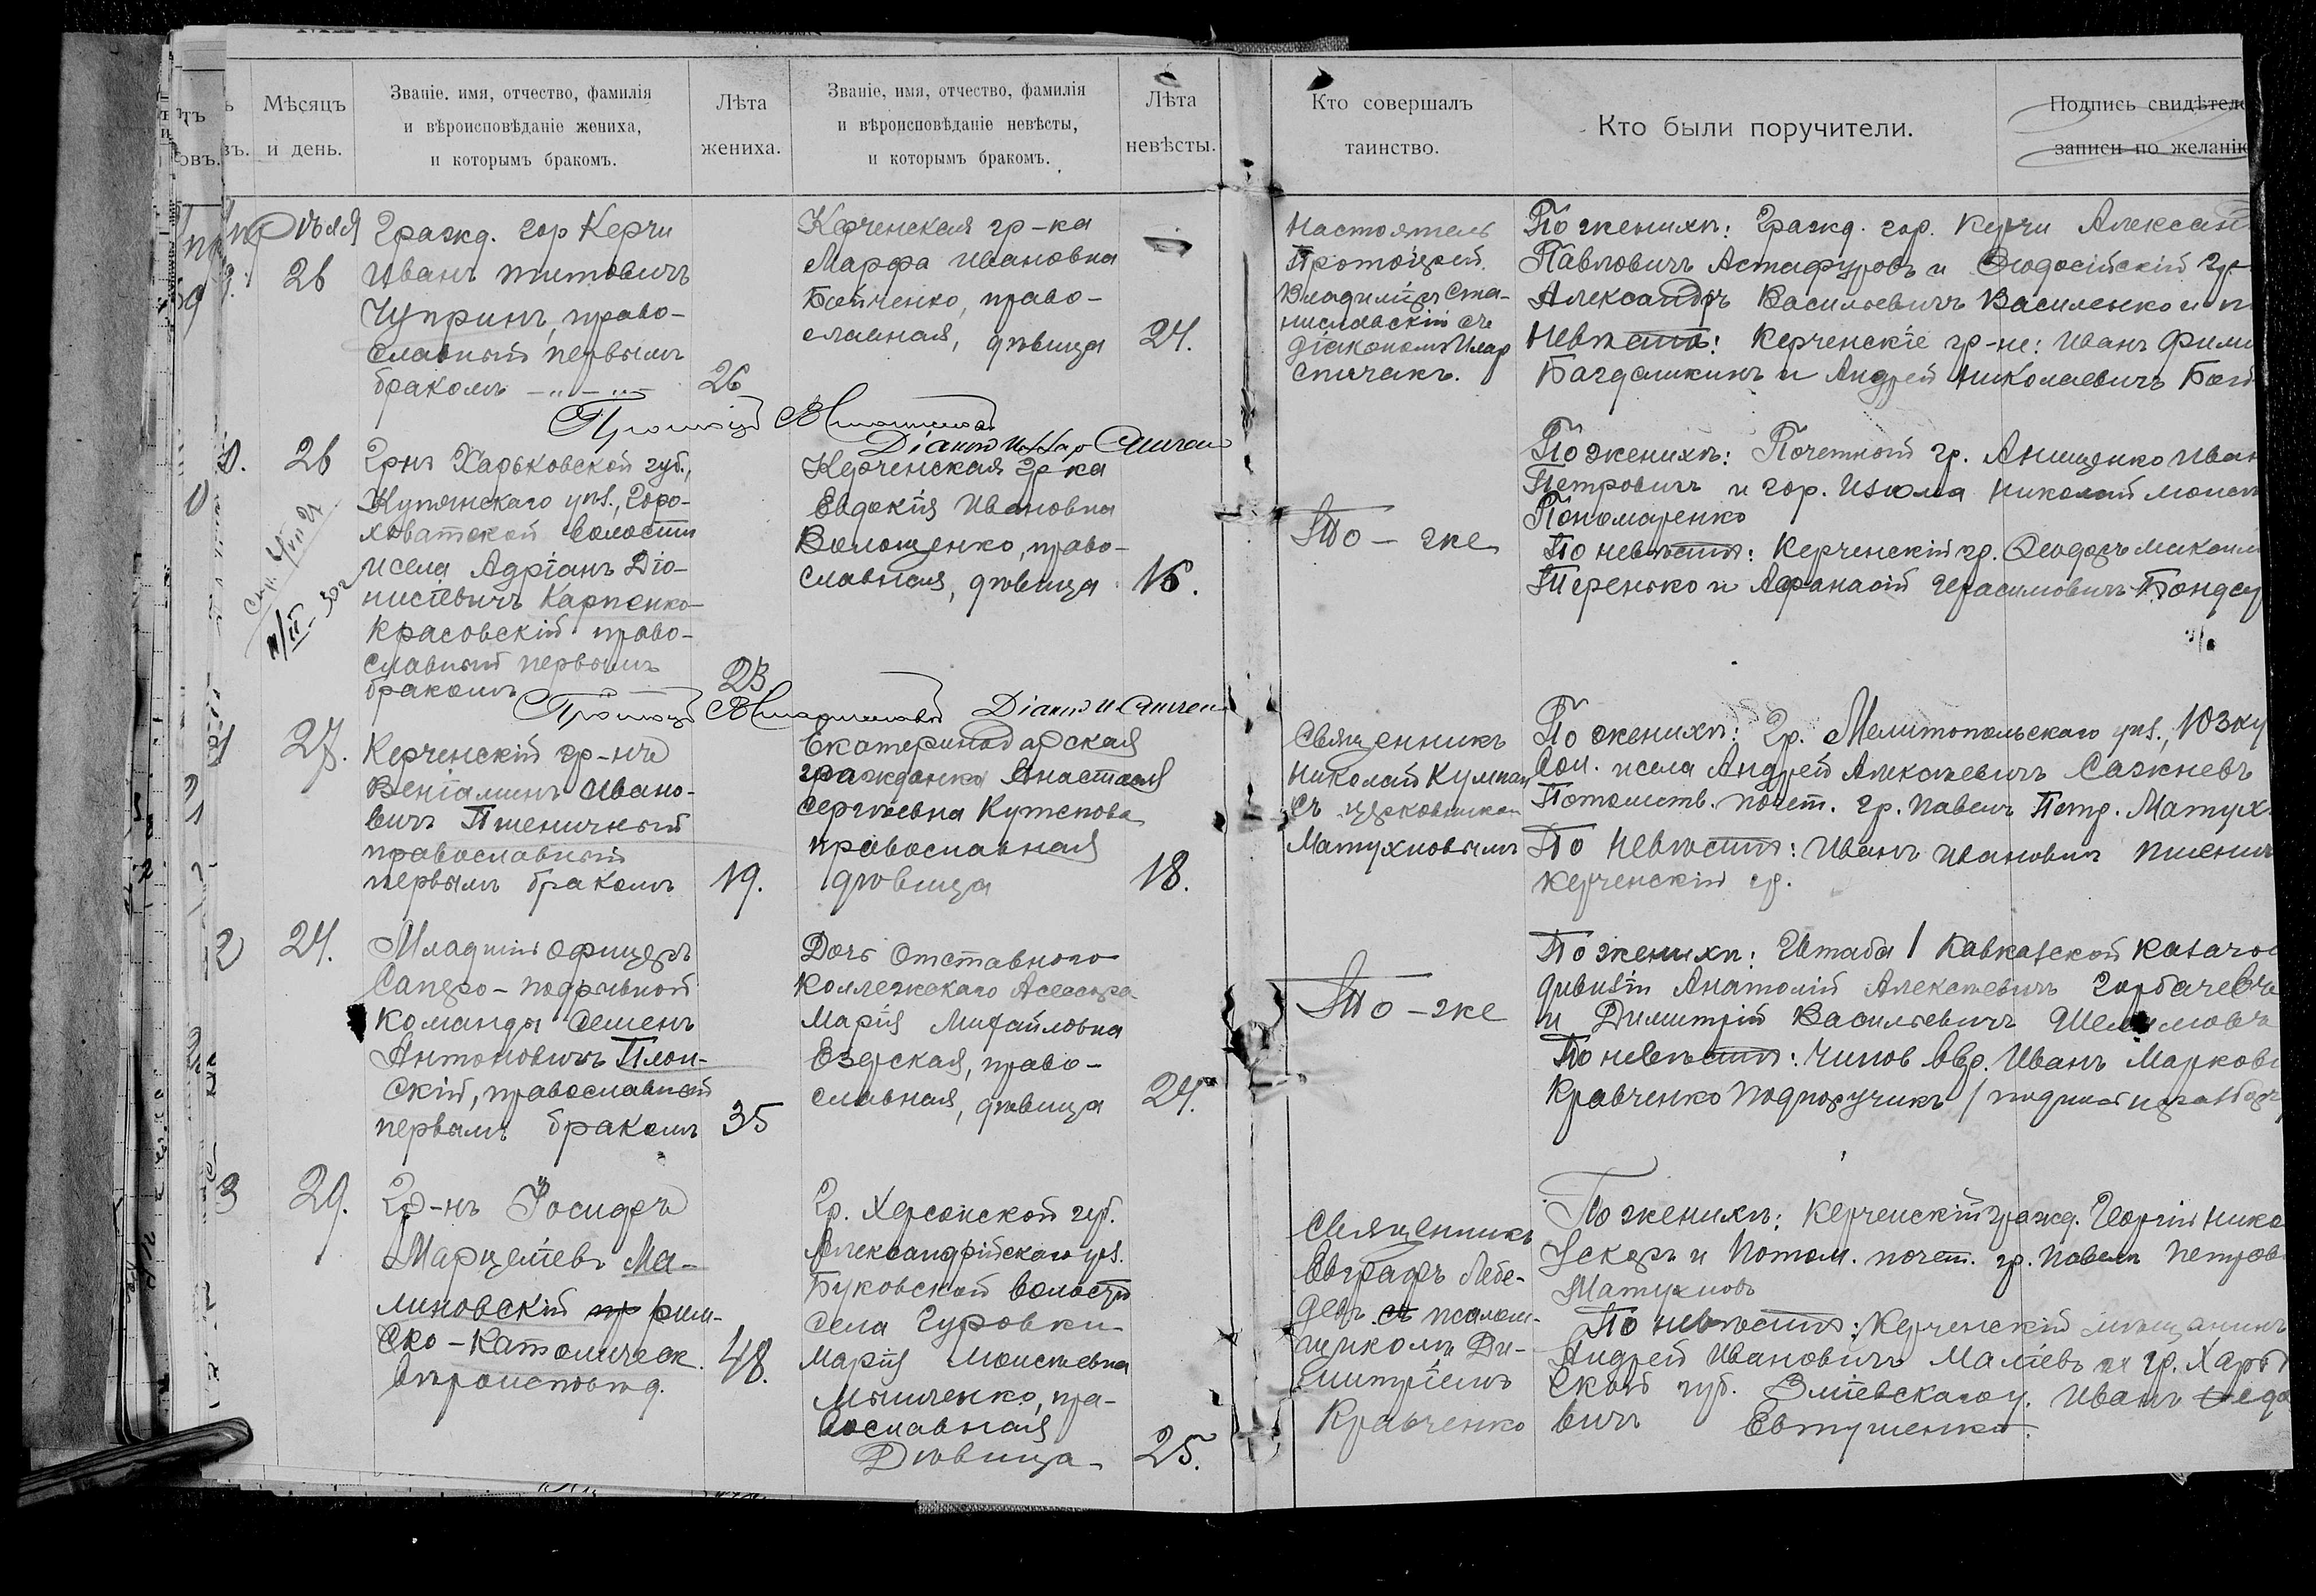 Мѣсяцъ
и день.
Званіе, имя, отчество, фамилія
и вѣроисповѣданіе жениха,
и которымъ бракомъ.
Лѣта
жениха.
Званіе, имя, отчество, фамилія
и вѣроисповѣданіе невѣсты,
и которымъ бракомъ.
Лѣта
невѣсты.
Кто совершалъ
таинство.
Кто были поручители.
Подпись
записи по желанію
26
Гражд. гор Керчи
Иванъ Титовичъ
Чупринъ, право-
славный первымъ
бракомъ
26
Керченская гр-ка
Марфа Ивановна
Бойченко, право-
славная, дѣвица
24.
Настоятель
Протоіерей
Владиміръ Ста-
ниславскій съ
діакономъ Илар
Спичакъ.
По женихѣ: Гражд. гор. Керчи Алексан
Павловичъ Астафуровъ и Ѳеодосійскій гр-
Александръ Васильевичъ Василенко и п
Невѣстѣ: Керченскіе гр-не: Иванъ Фили
Багдашкинъ и Андрей Николаевичъ
26
Грнъ Харьковской губ.,
Купянскаго уѣз., Горо-
ховатской волости
и села Адріанъ Діо-
нисіевичъ Карпенко-
Красовскій право-
славный первымъ
бракомъ
23
Керченская гр ка
Евдокія Ивановна
Волощенко, право-
славная, дѣвица
16.
То - же
По женихѣ: Почетный гр. Анищенко Иван
Петровичъ и гор. Изюма Николай
Пономаренко
По невѣстѣ: Керченскій гр. Ѳеодоръ
Теренько и Афанасій Герасимовичъ
27.
Керченскій гр-нъ
Веніаминъ Ивано-
вичъ Пшеничный
православный
первымъ бракомъ
19.
Екатеринодарская
гражданка Анастасія
Сергѣевна Кутепова
православная
дѣвица
18.
Священникъ
Николай
съ
Матухновымъ
По женихѣ: Гр. Мелитопольскаго уѣз.,
и села Андрей Алексѣевичъ Сажневъ
Потомств. почет. гр. Павелъ Петр. Матух
По Невѣстѣ: Иванъ Ивановичъ Пшенич
Керченскій гр.
2
Младшій офицеръ
Саперо-подрывной
команды Семенъ
Антоновичъ Плон-
скій, православный
первымъ бракомъ
35
Дочь Отставного
Коллежскаго Асессора
Марія Михайловна
Езерская, право-
славная, дѣвица
24.
То - же
По женихѣ: Штаба 1 Кавказской казачьей
дивизіи Анатолій Алексѣевичъ Горбачевъ
и Димитрій Васильевичъ
По невѣстѣ: Чинов. Иванъ Марков
Кравченко Подпоручикъ
3
29.
Гр-нъ
Марцеліевъ Ма-
линовскій рим-
ско-католическ.
вѣроисповѣд.
48.
Гр. Херсонской губ.
Александрійскаго уѣз.
Буковской волости
села Гуровки
Марія Моисеевна
пра-
вославная
Дѣвица
25.
Священникъ
Евграфъ Лебе-
девъ съ псалом-
щикомъ Ди-
митріемъ
Кравченко
По женихѣ: Керченскій гражд. Георгій Нико
и Потом. почет. гр. Павелъ Петров
Матухновъ
По невѣстѣ: Керченскій мѣщанинъ
Андрей Ивановичъ Маліевъ и гр. Харьк
ской губ. Зміевскаго у. Иванъ Ѳедо
вичъ Евтушенко.